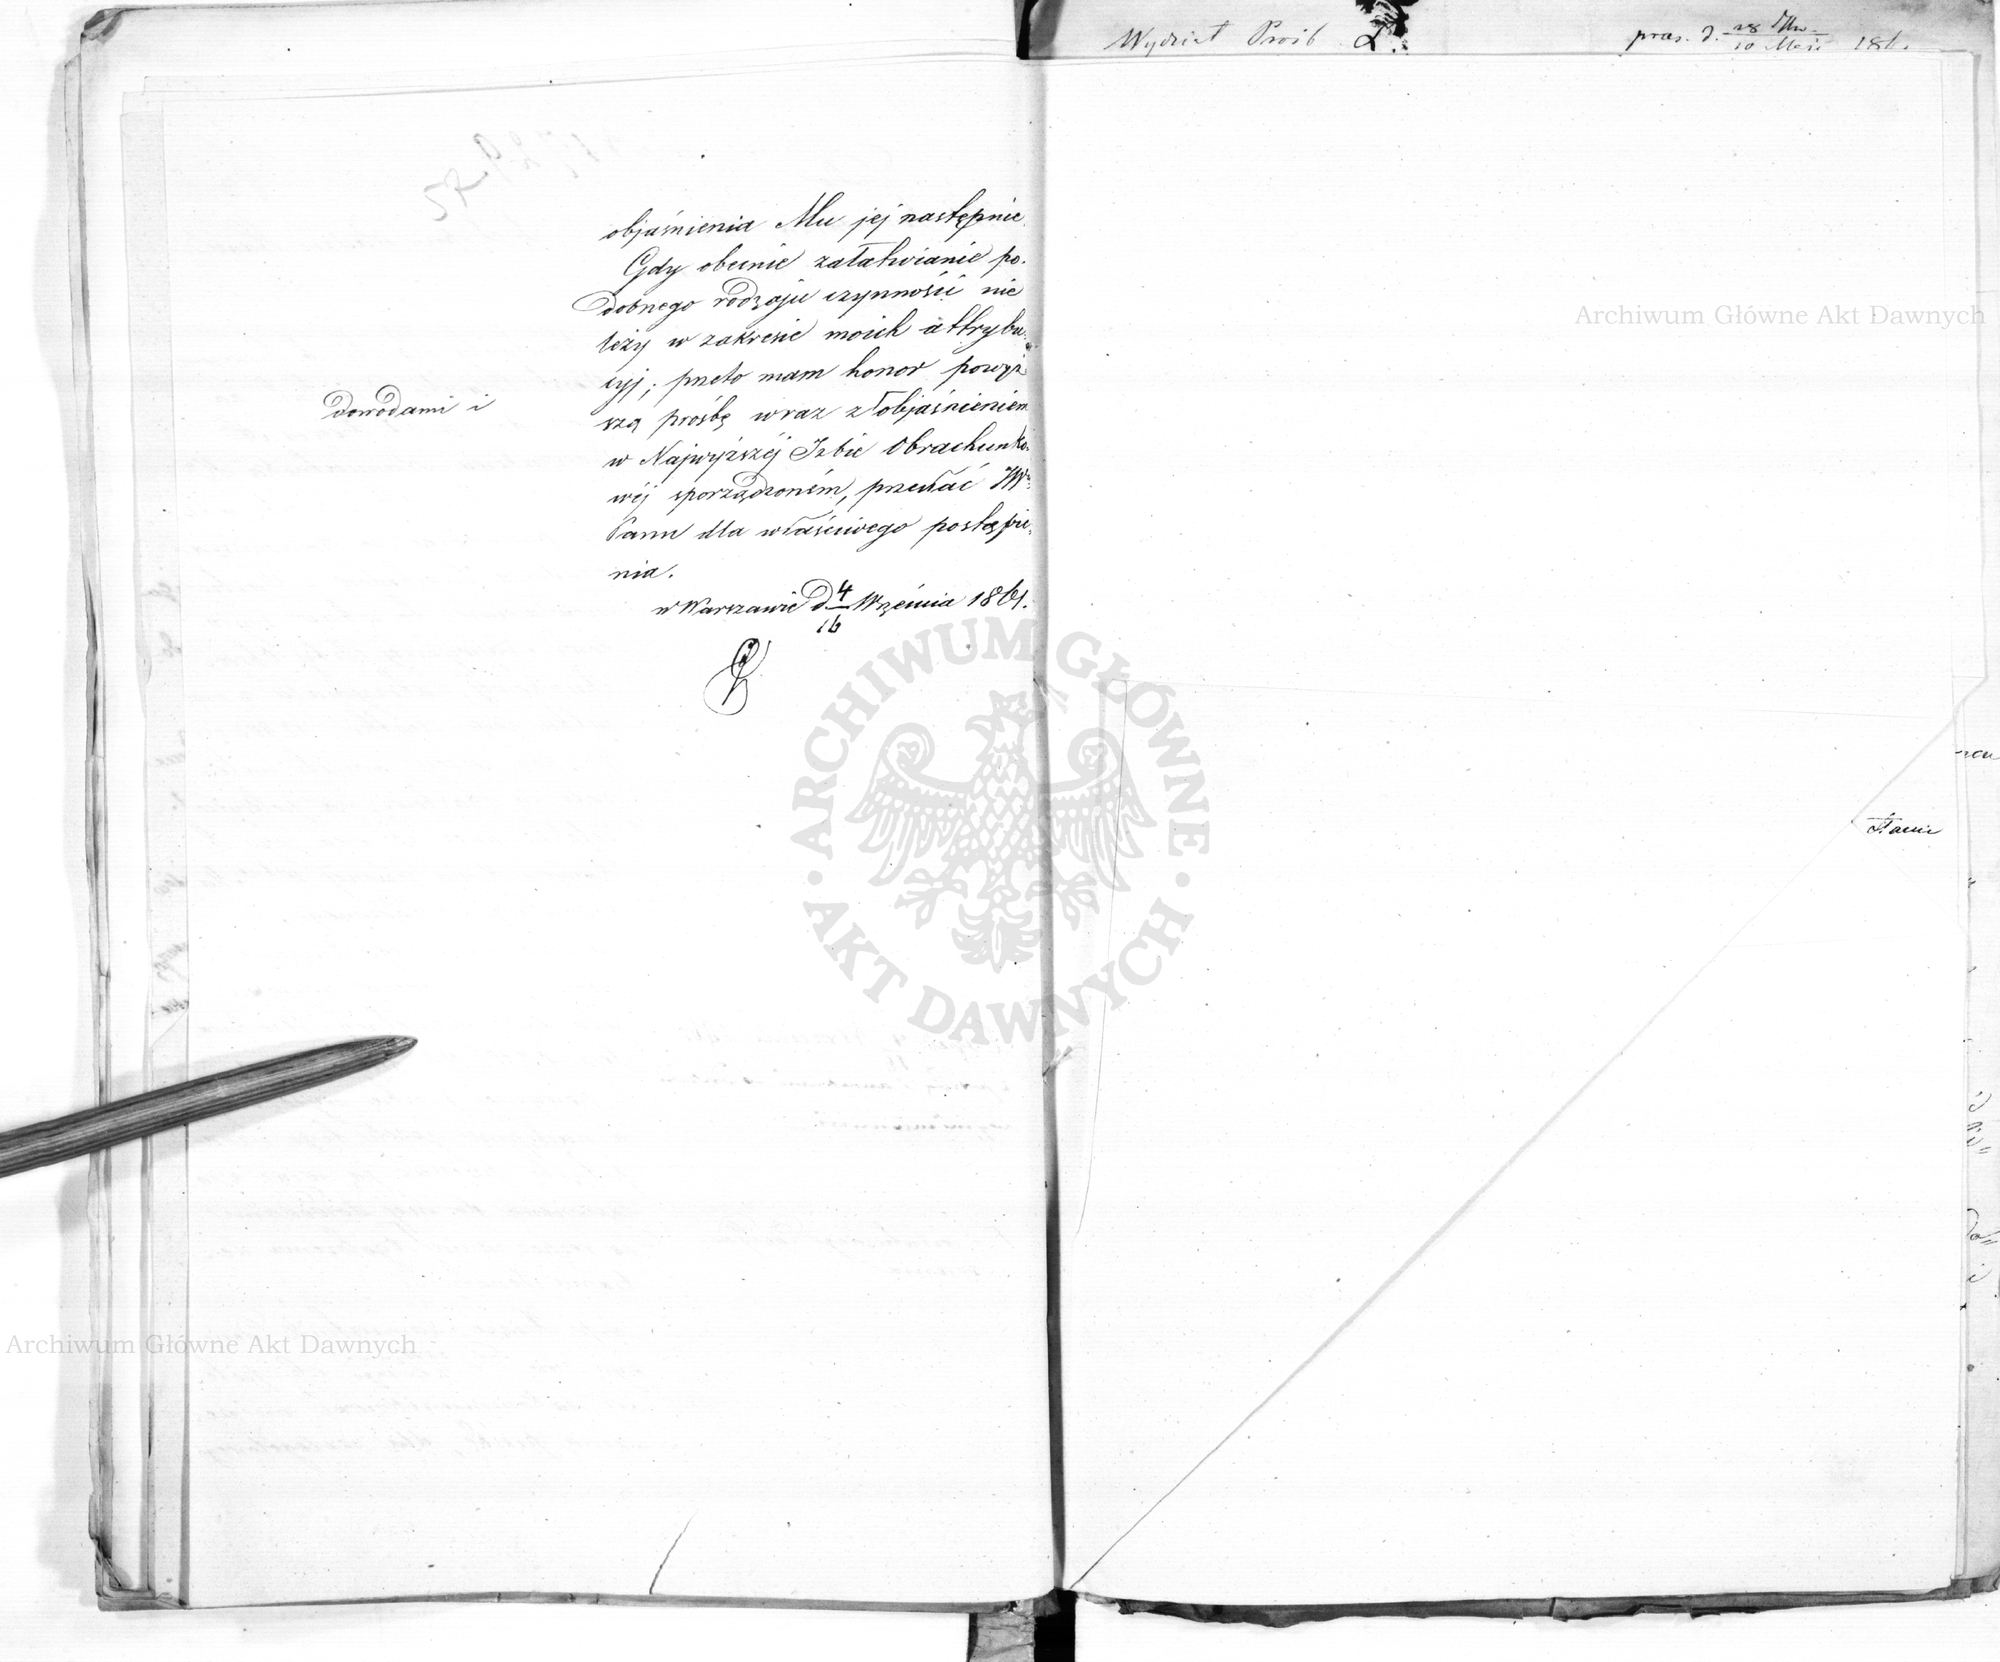 Wydział Próśb
objaśnienia Mu jej następnie.
Gdy obecnie załatwianie po-
dobnego rodzaju czynności nie
leży w zakresie moich attrybu-
cyj; przeto mam honor powyż-
szą prośbę wraz z objaśnieniem
dowodami i
w Najwyższéj Izbie Obrachunko-
wéj sporządzoném, przesłać JW
Panu dla właściwego postąpie-
nia.
w Warszawie d 4/16 Września 1861.
ARCHIWUM GŁÓWNE AKT DAWNYCH
Archiwum Główne Akt Dawnych
Archiwum Główne Akt Dawnych